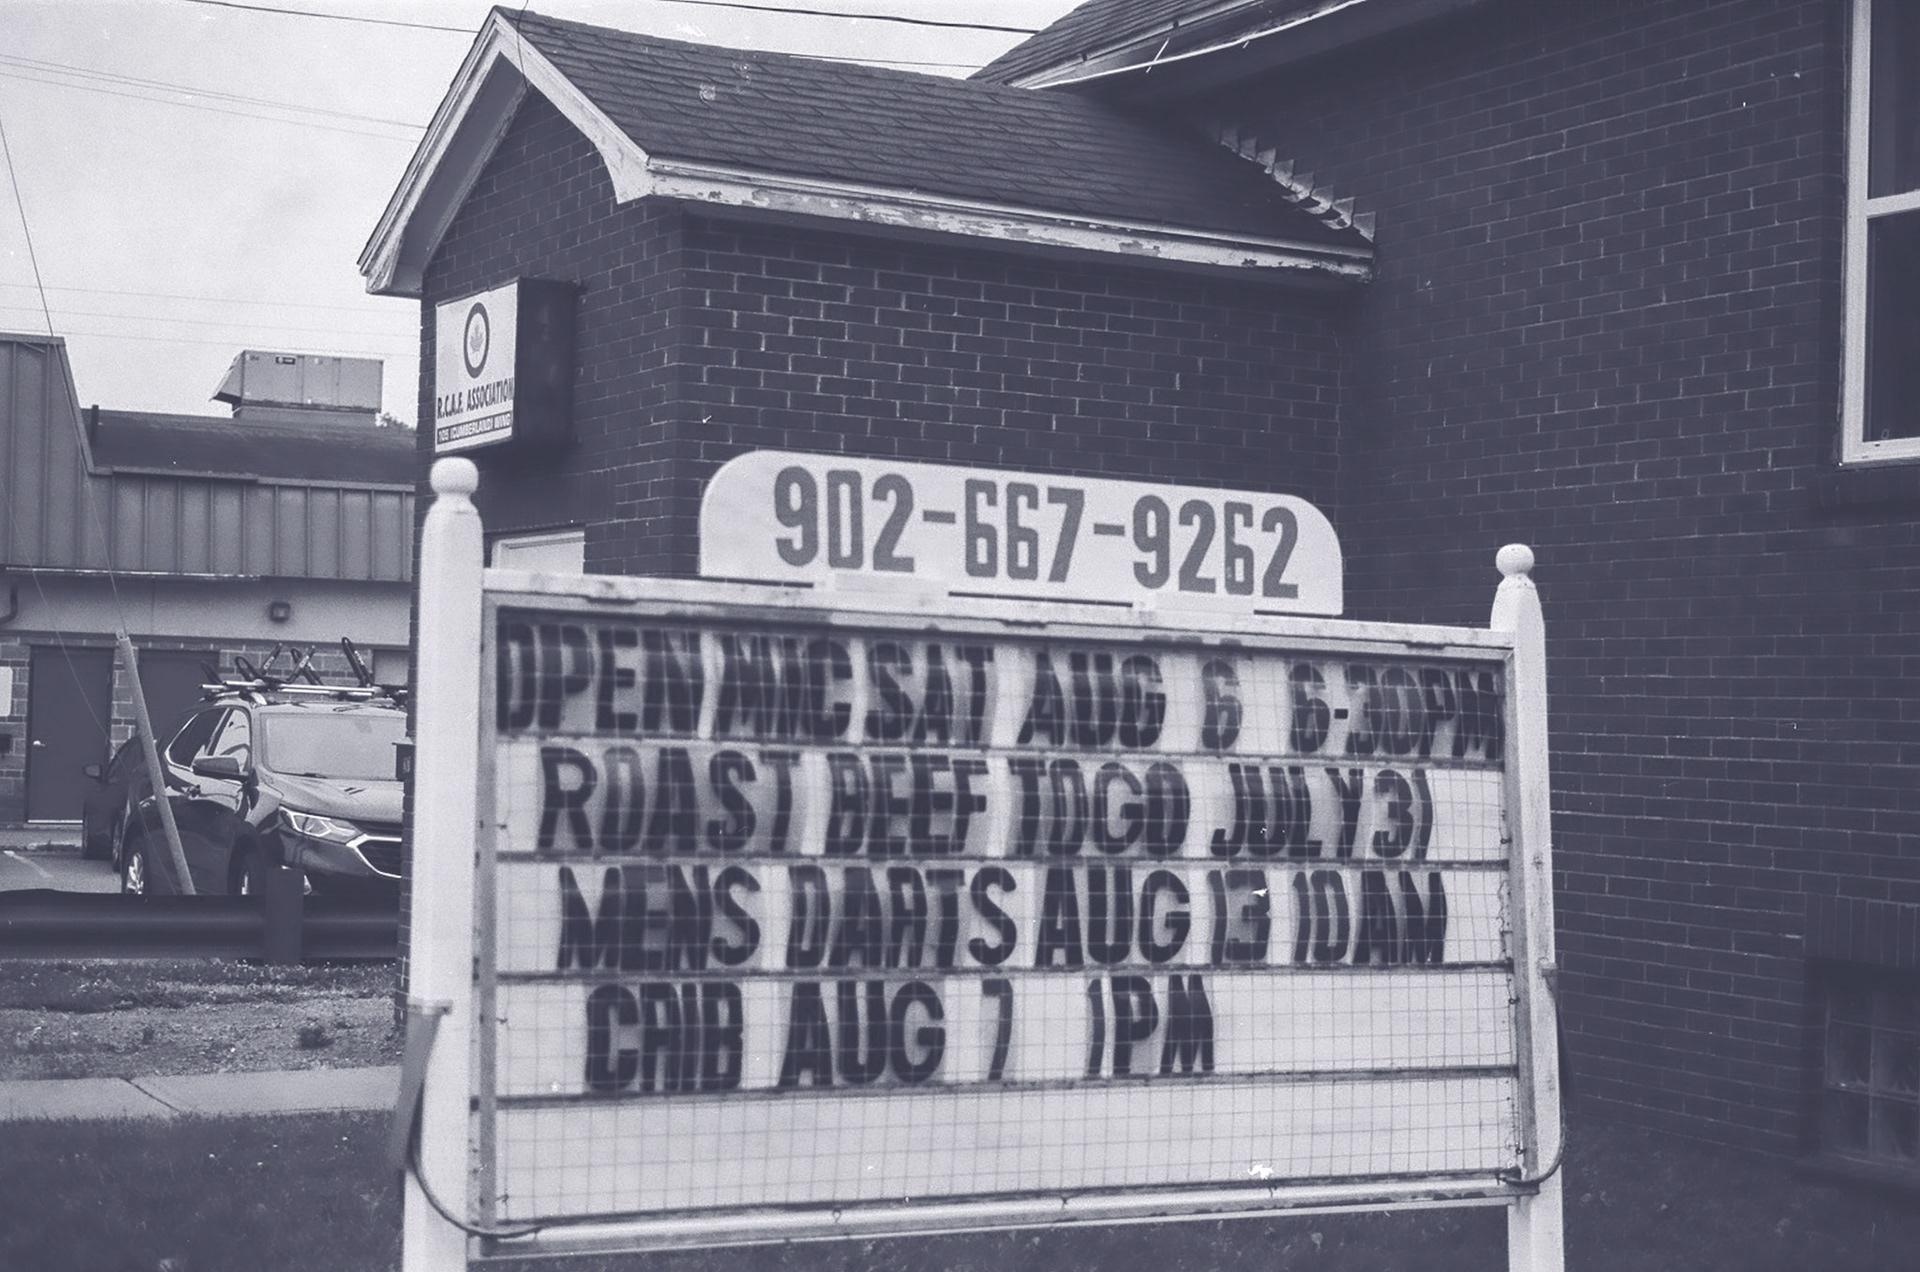 R.C.A.F. ASSOCIATION
109 (CUMBERLAND) WING
902-667-9262
OPEN MIC SAT AUG 6 6-30PM
ROAST BEEF TO GO JULY 31
MENS DARTS AUG 13 10 AM
CRIB AUG 7 1PM